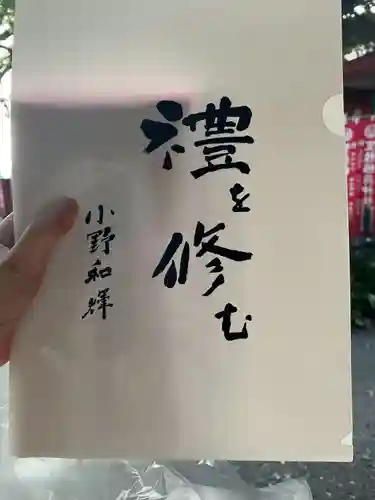 禮を修む
小野和輝